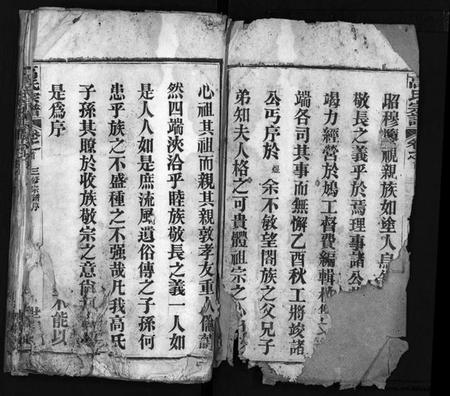 高氏宗譜
昭穆
視親族如塗人
敬長之義乎於焉理事諸公
竭力經營於鳩工督費編輯
端各司其事而無懈乙酉秋工將竣諸
公丐序於 余不敏望閤族之父兄子
弟知夫人格之可貴體祖宗之
心祖其祖而親其親敦孝友重人倫
然四端浹洽乎睦族敬長之義一人如
是人人如是庶流風遺俗傳之子孫何
患乎族之不盛種之不强哉凡我高氏
子孫其瞭於收族敬宗之意
不能以
是為序
高氏宗譜
三
序